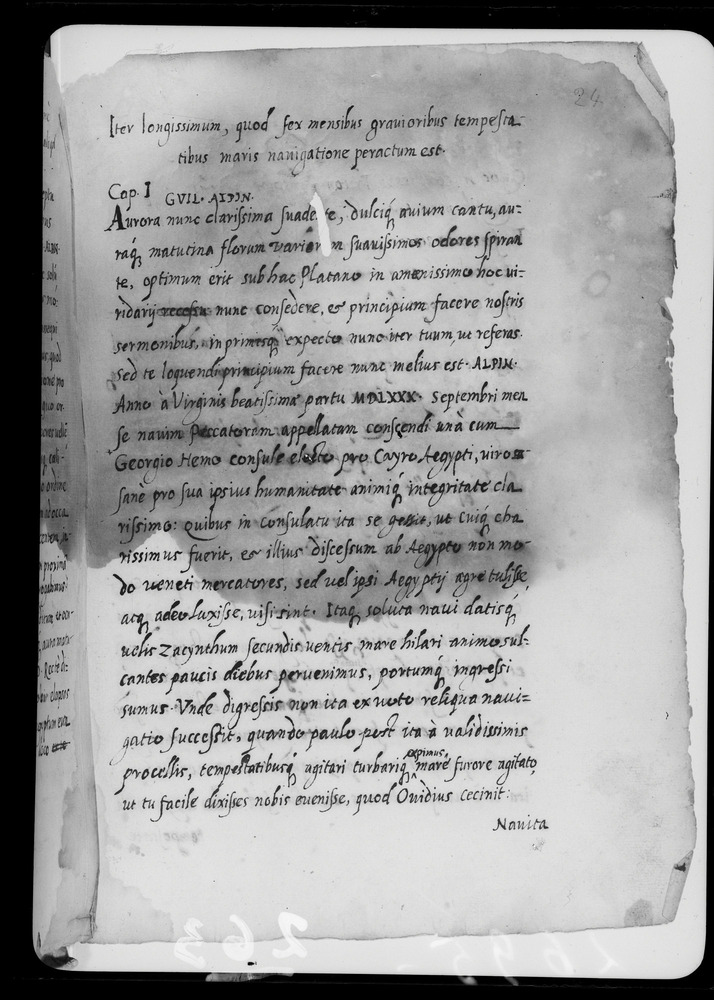 24
Iter longissimum, quod sex mensibus grauioribus tempesta-
tibus maris nauigatione peractum est.
Cap. I GVIL. ALPIN.
Aurora nunc clarissima suadente, dulciq́ auium cantu, au-
raq́ matutina florum variorum suauissimos odores spiran
te, optimum erit sub hac Platano in amenissimo hoc ui-
ridarij recessu nunc consedere, et principium facere nostris
sermonibus, in primisq́ expecto nunc iter tuum, ut referas.
Sed te loquendi principium facere nunc melius est. ALPIN.
Anno à Virginis beatissimae partu MDLXXX. Septembri men
se nauim Peccatoram appellatam conscendi unà cum
Georgio Hemo consule electo pro Cayro Aegypti, uiro
sanè pro sua ipsius humanitate animiq́ integritate cla
rissimo: Quibus in Consulatu ita se gessit, ut Cuiq́ cha
rissimus fuerit, et illius discessum ab Aegypto non mo-
do ueneti mercatores, sed uel ipsi Aegyptij aegre tulisse
acq́ adeo luxisse, uisi sint. Itaq́ soluta naui datisq́
uelis Zacynthum secundis uentis mare hilari animo sul-
cantes paucis diebus peruenimus, portumq́ ingressi
sumus. Vnde digressis non ita ex uoto reliqua naui-
gatio successit, quando paulo post ita à ualidissimis
procellis, tempestatibusq́ agitari turbariq́ cepimus mare furore agitato,
ut tu facile dixisses nobis euenisse, quod Ouidius cecinit:
Nauita